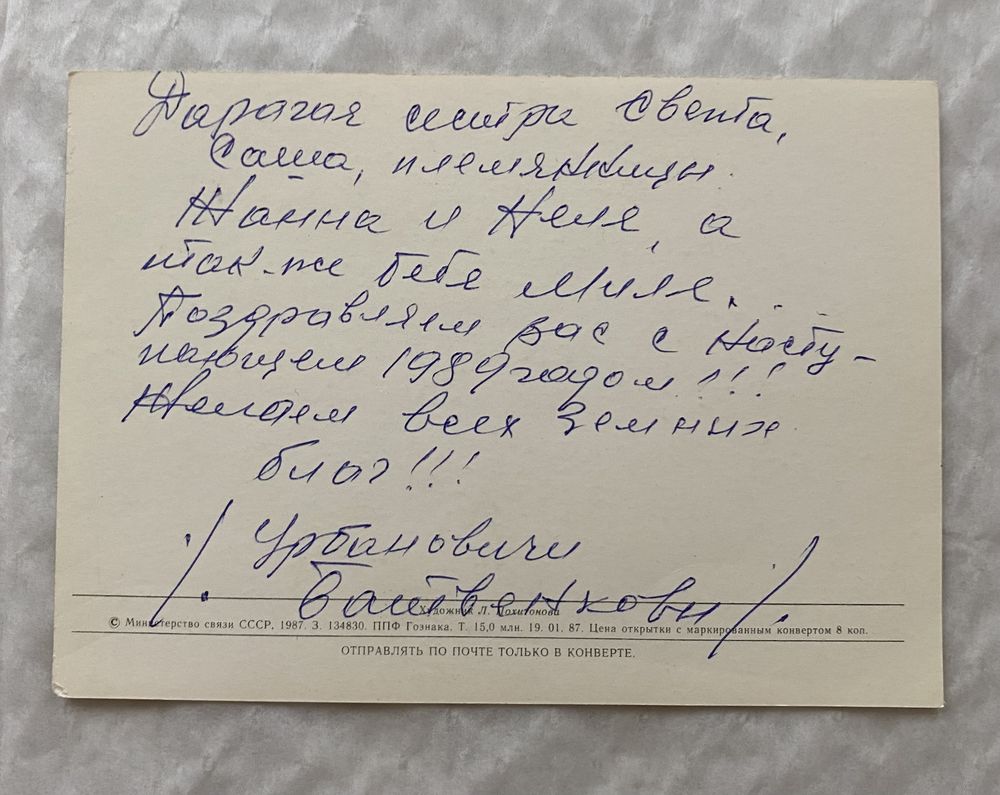 Дарагая систра Света,
Саша, племянницы
Жанна и Неля, а
так-же тебя Миля.
Поздравляем вас с насту-
пающем 1989 годом!!!
Желаем всех земных
благ!!!
/. Урбановичи
Батвенковы /.
Художник Л. Похитонова
© Министерство связи СССР, 1987. З. 134830. ППФ Гознака. Т. 15,0 млн. 19. 01. 87. Цена открытки с маркированным конвертом 8 коп.
ОТПРАВЛЯТЬ ПО ПОЧТЕ ТОЛЬКО В КОНВЕРТЕ.